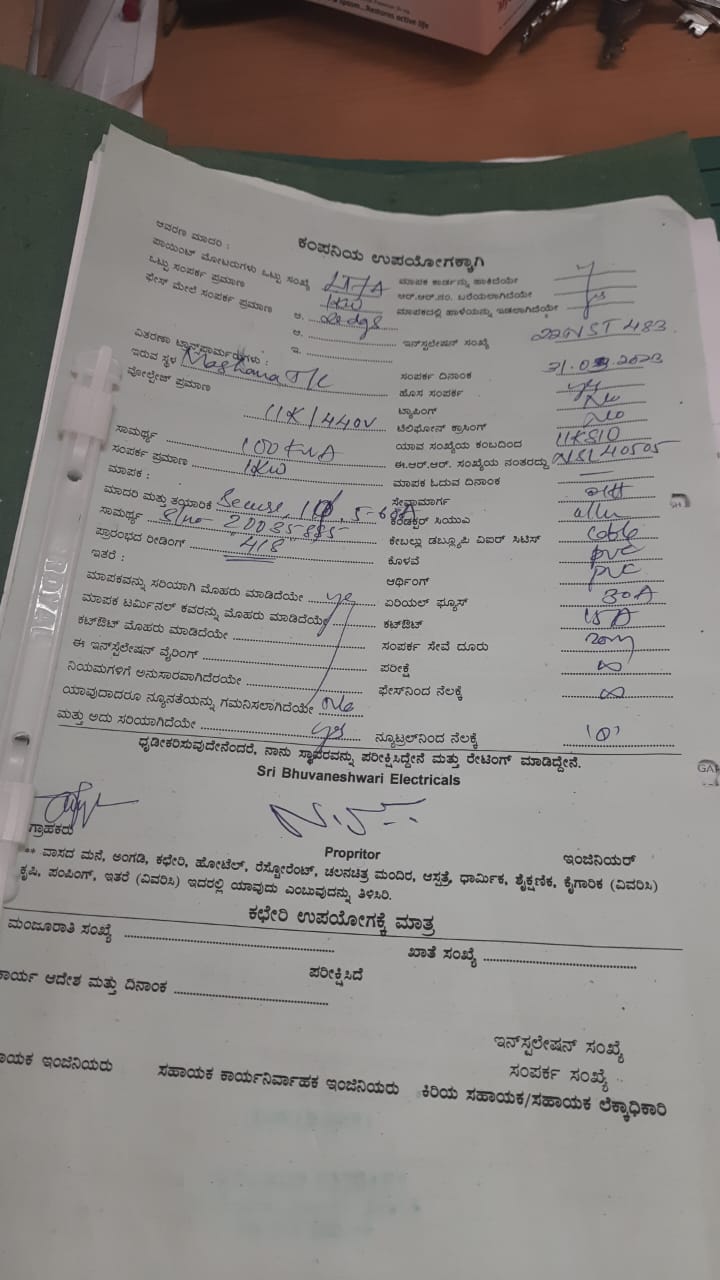 ...Restores active life
ಕಂಪನಿಯ ಉಪಯೋಗಕ್ಕಾಗಿ
ಆವರಣ ಮಾದರಿ :
ಪಾಯಿಂಟ್ ಮೋಟರುಗಳು ಒಟ್ಟು ಸಂಖ್ಯೆ LT7A ಮಾಪಕ ಕಾರ್ಡನ್ನು ಹಾಕಿದೆಯೇ
ಒಟ್ಟು ಸಂಪರ್ಕ ಪ್ರಮಾಣ 1KW ಆರ್.ಆರ್.ನಂ. ಬರೆಯಲಾಗಿದೆಯೇ
ಫೇಸ್ ಮೇಲೆ ಸಂಪರ್ಕ ಪ್ರಮಾಣ ಅ. ಮಾಪಕದಲ್ಲಿ ಹಾಳೆಯನ್ನು ಇಡಲಾಗಿದೆಯೇ ys
ಆ. ಇನ್‌ಸ್ಟಲೇಷನ್ ಸಂಖ್ಯೆ 22NST483
ಇ.
ವಿತರಣಾ ಟ್ರಾನ್ಸ್‌ಫಾರ್ಮರ್‍ಗಳು :
ಇರುವ ಸ್ಥಳ T/C ಸಂಪರ್ಕ ದಿನಾಂಕ
ವೋಲ್ಟೇಜ್ ಪ್ರಮಾಣ 11K/440V ಹೊಸ ಸಂಪರ್ಕ ys
ಟ್ಯಾಪಿಂಗ್ No
ಟೆಲಿಫೋನ್ ಕ್ರಾಸಿಂಗ್ No
ಸಾಮರ್ಥ್ಯ 100KVA ಯಾವ ಸಂಖ್ಯೆಯ ಕಂಬದಿಂದ 11KS10
ಸಂಪರ್ಕ ಪ್ರಮಾಣ 1KW ಈ.ಆರ್.ಆರ್. ಸಂಖ್ಯೆಯ ನಂತರದ್ದು NSL40505
ಮಾಪಕ : ಮಾಪಕ ಓದುವ ದಿನಾಂಕ
ಮಾದರಿ ಮತ್ತು ತಯಾರಿಕೆ Secure, ಸೇವಾಮಾರ್ಗ
ಸಾಮರ್ಥ್ಯ S/no- 20035885- ಕಂಡಕ್ಟರ್ ಸಿಯುಎ
ಪ್ರಾರಂಭದ ರೀಡಿಂಗ್ "418" ಕೇಬಲ್ಲು ಡಬ್ಲ್ಯೂಪಿ ವಿಐರ್ ಸಿಟಿಸ್ cable
ಇತರೆ : ಕೊಳವೆ pvc
ಮಾಪಕವನ್ನು ಸರಿಯಾಗಿ ಮೊಹರು ಮಾಡಿದೆಯೇ ys ಆರ್ಥಿಂಗ್ pvc
ಮಾಪಕ ಟರ್ಮಿನಲ್ ಕವರನ್ನು ಮೊಹರು ಮಾಡಿದೆಯೇ ಏರಿಯಲ್ ಫ್ಯೂಸ್ 30A
ಕಟ್‌ಔಟ್ ಮೊಹರು ಮಾಡಿದೆಯೇ ಕಟ್‌ಔಟ್ 15A
ಈ ಇನ್‌ಸ್ಟೆಲೇಷನ್ ವೈರಿಂಗ್ ಸಂಪರ್ಕ ಸೇವೆ ದೂರು 20m
ನಿಯಮಗಳಿಗೆ ಅನುಸಾರವಾಗಿದೆರಯೇ ಪರೀಕ್ಷೆ ∞
ಯಾವುದಾದರೂ ನ್ಯೂನತೆಯನ್ನು ಗಮನಿಸಲಾಗಿದೆಯೇ No ಫೇಸ್‌ನಿಂದ ನೆಲಕ್ಕೆ ∞
ಮತ್ತು ಅದು ಸರಿಯಾಗಿದೆಯೇ yes ನ್ಯೂಟ್ರಲ್‌ನಿಂದ ನೆಲಕ್ಕೆ '0'
ಧೃಡೀಕರಿಸುವುದೇನೆಂದರೆ, ನಾನು ಸ್ಥಾವರವನ್ನು ಪರಿಕ್ಷಿಸಿದ್ದೇನೆ ಮತ್ತು ರೇಟಿಂಗ್ ಮಾಡಿದ್ದೇನೆ.
Sri Bhuvaneshwari Electricals
ಗ್ರಾಹಕರು Propritor ಇಂಜಿನಿಯರ್
** ವಾಸದ ಮನೆ, ಅಂಗಡಿ, ಕಛೇರಿ, ಹೋಟೆಲ್, ರೆಸ್ಟೋರೆಂಟ್, ಚಲನಚಿತ್ರ ಮಂದಿರ, ಆಸ್ಪತ್ರೆ, ಧಾರ್ಮಿಕ, ಶೈಕ್ಷಣಿಕ, ಕೈಗಾರಿಕ (ವಿವರಿಸಿ)
ಕೃಷಿ, ಪಂಪಿಂಗ್, ಇತರೆ (ವಿವರಿಸಿ) ಇದರಲ್ಲಿ ಯಾವುದು ಎಂಬುವುದನ್ನು ತಿಳಿಸಿರಿ.
ಕಛೇರಿ ಉಪಯೋಗಕ್ಕೆ ಮಾತ್ರ
ಮಂಜೂರಾತಿ ಸಂಖ್ಯೆ ಖಾತೆ ಸಂಖ್ಯೆ
ಪರೀಕ್ಷಿಸಿದೆ
ಕಾರ್ಯ ಆದೇಶ ಮತ್ತು ದಿನಾಂಕ
ಇನ್‌ಸ್ಪಲೇಷನ್ ಸಂಖ್ಯೆ
ಸಂಪರ್ಕ ಸಂಖ್ಯೆ
ಾಯಕ ಇಂಜಿನಿಯರು ಸಹಾಯಕ ಕಾರ್ಯನಿರ್ವಾಹಕ ಇಂಜಿನಿಯರು ಕಿರಿಯ ಸಹಾಯಕ/ಸಹಾಯಕ ಲೆಕ್ಕಾಧಿಕಾರಿ
ROYAL